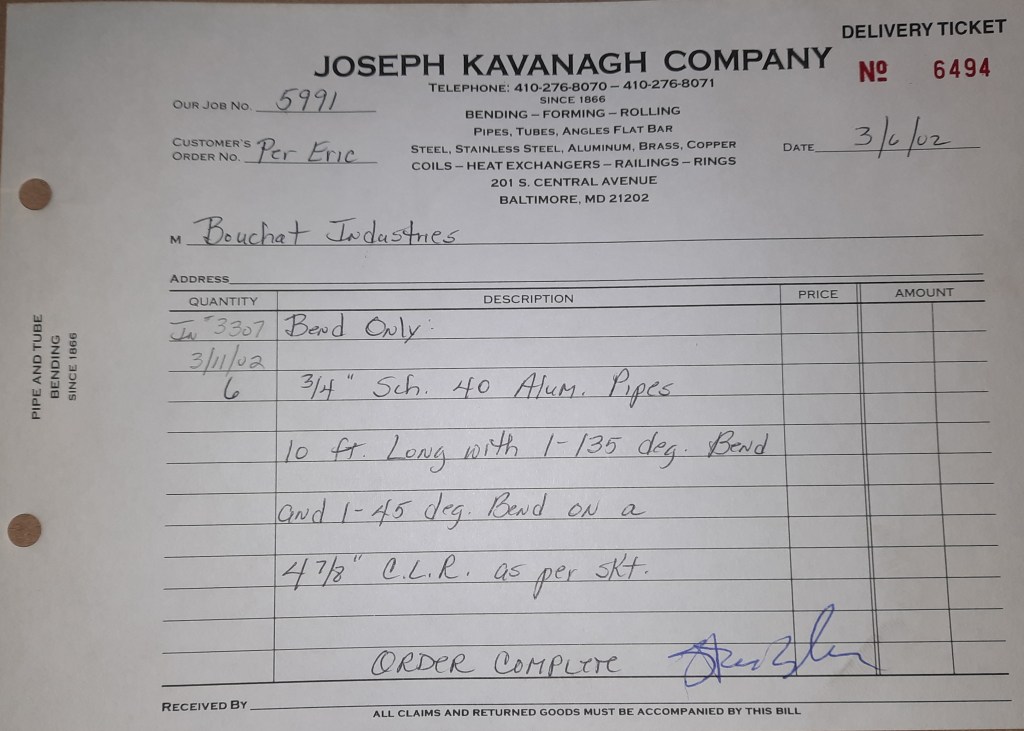 DELIVERY TICKET
JOSEPH KAVANAGH COMPANY
Nº 6494
TELEPHONE: 410-276-8070 – 410-276-8071
SINCE 1866
OUR JOB NO. 5991
BENDING – FORMING – ROLLING
PIPES, TUBES, ANGLES FLAT BAR
CUSTOMER'S ORDER NO. Per Eric
STEEL, STAINLESS STEEL, ALUMINUM, BRASS, COPPER
DATE 3/6/02
COILS – HEAT EXCHANGERS – RAILINGS – RINGS
201 S. CENTRAL AVENUE
BALTIMORE, MD 21202
M Bouchat Industries
ADDRESS
QUANTITY DESCRIPTION PRICE AMOUNT
In #3307 Bend Only:
3/11/02
6 3/4" Sch. 40 Alum. Pipes
10 ft. Long with 1-135 deg. Bend
and 1-45 deg. Bend on a
4 7/8" C.L.R. as per skt.
ORDER COMPLETE
RECEIVED BY
ALL CLAIMS AND RETURNED GOODS MUST BE ACCOMPANIED BY THIS BILL
PIPE AND TUBE
BENDING
SINCE 1866